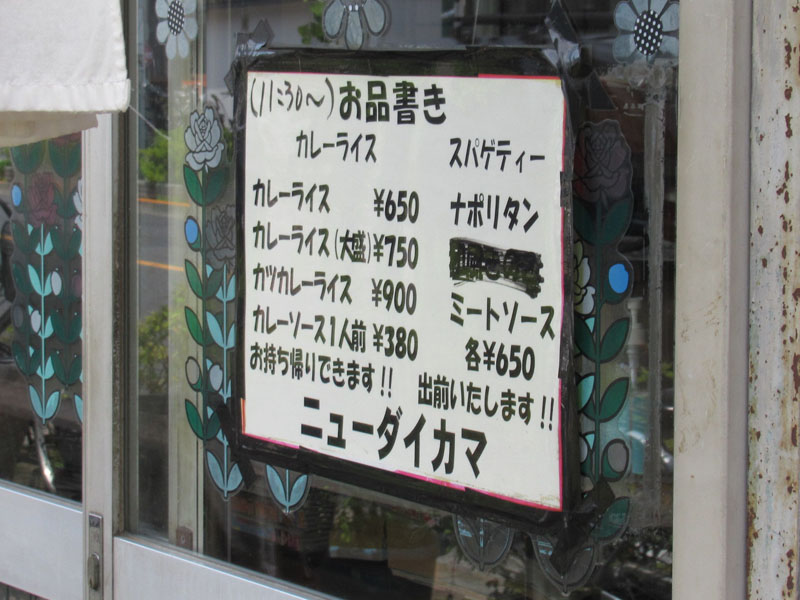 (11:30~)お品書き
カレーライス
カレーライス ¥650
カレーライス(大盛)¥750
カツカレーライス ¥900
カレーソース1人前 ¥380
スパゲティー
ナポリタン
ミートソース
各¥650
お持ち帰りできます!! 出前いたします!!
ニューダイカマ